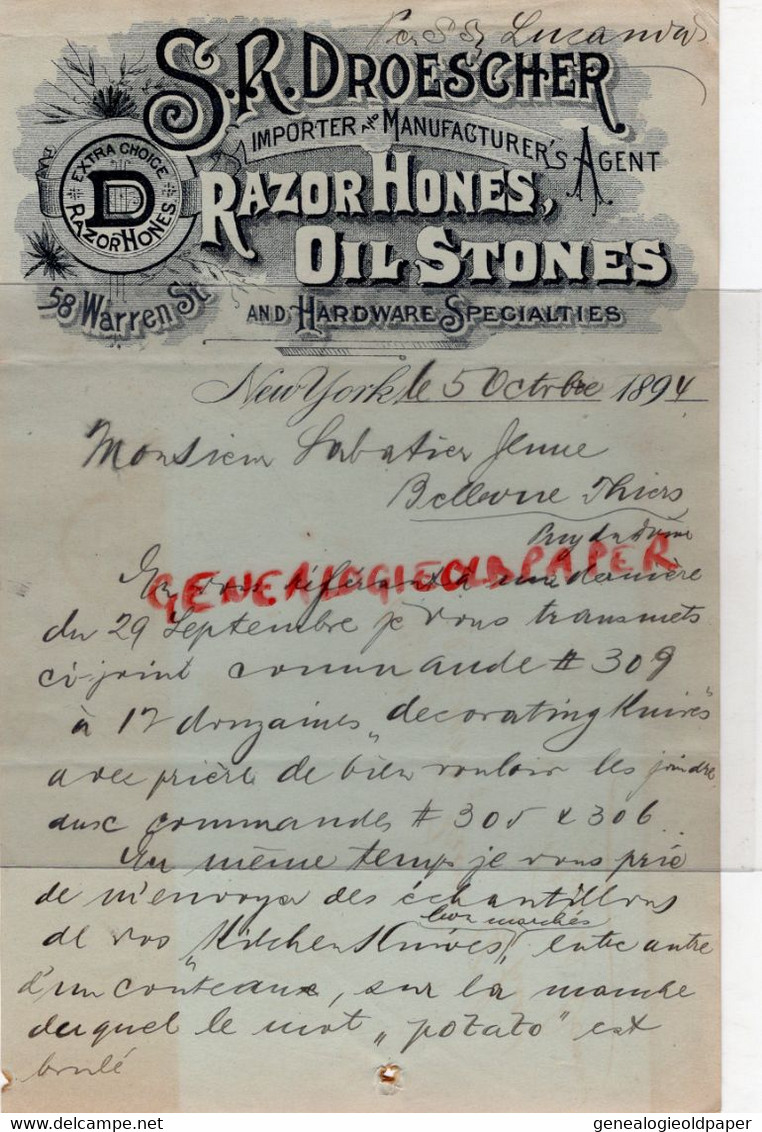 per SS Lucania
S. R. DROESCHER
IMPORTER AND MANUFACTURER'S AGENT
EXTRA CHOICE
D
RAZOR HONES
RAZOR HONES,
OIL STONES
58 Warren St.
AND HARDWARE SPECIALTIES
New York, le 5 Octobre 1894
Monsieur Sabatier Jeune
Bellevue Thiers
Puy du Dôme
GENEALOGIEOLDPAPER
En vous référant à ma dernière
du 29 Septembre je vous transmets
ci-joint commande # 309
à 12 douzaines „decorating Knives"
avec prière de bien vouloir les joindre
aux commandes # 305 & 306.
En même temps je vous prie
de m'envoyer des échantillons
bon marchés
de vos „Kitchen Knives", entre autre
d'un couteaux, sur la manche
duquel le mot „potato" est
brulé
genealogieoldpaper